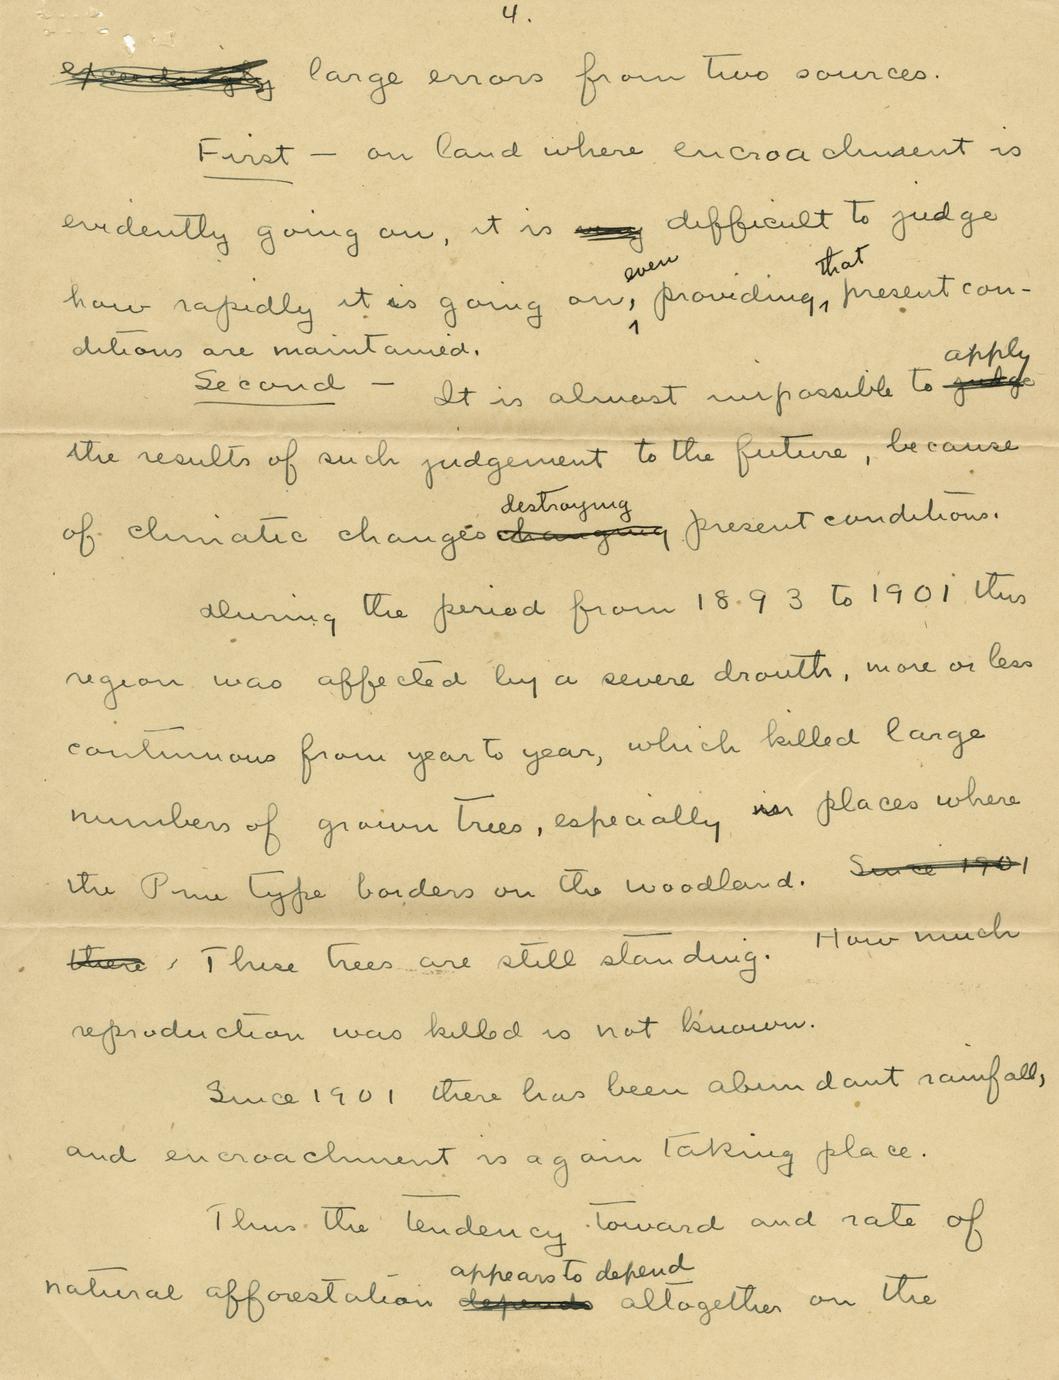 4.
exceedingly large errors from two sources.
First – on land where encroachment is
evidently going on, it is very difficult to judge
even that
how rapidly it is going on, providing, present con-
ditions are maintained.
apply
Second – It is almost impossible to judge
the results of such judgement to the future, because
destroying
of climatic changes changing present conditions.
During the period from 1893 to 1901 this
region was affected by a severe drouth, more or less
continuous from year to year, which killed large
numbers of grown trees, especially in places where
the Pine type borders on the woodland. Since 1901
there, These trees are still standing. How much
reproduction was killed is not known.
Since 1901 there has been abundant rainfall,
and encroachment is again taking place.
Thus the tendency toward and rate of
appears to depend
natural afforestation depends altogether on the